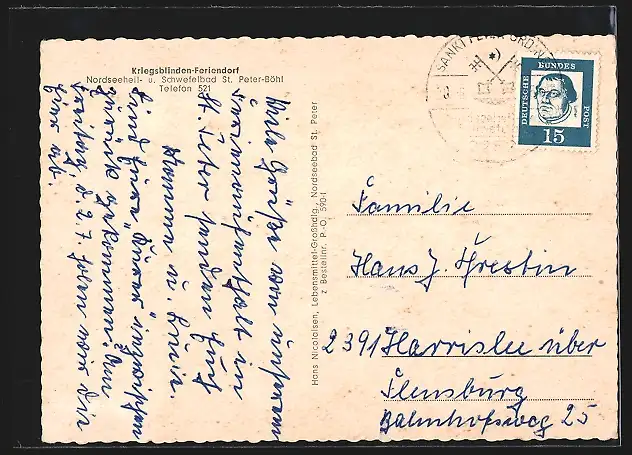 Kriegsblinden-Feriendorf
Nordseeheil- u. Schwefelbad St. Peter-Böhl
Telefon 521
Viele Grüße von unserem
Ferienaufenthalt in
St. Peter senden Euch
u. Luise.
Sind Eure
zurück gekommen. Am
d. 2. 7. holen wir Sie
Hans Nicolaisen, Lebensmittel-Großhdlg., Nordseebad St. Peter
z Bestellnr. P.-O. 590-I
SANKT PETER-ORD
DEUTSCHE BUNDES POST
15
Familie
Hans J. Threstin
2391 Harrislee über
Flensburg
Bahnhofsweg 25